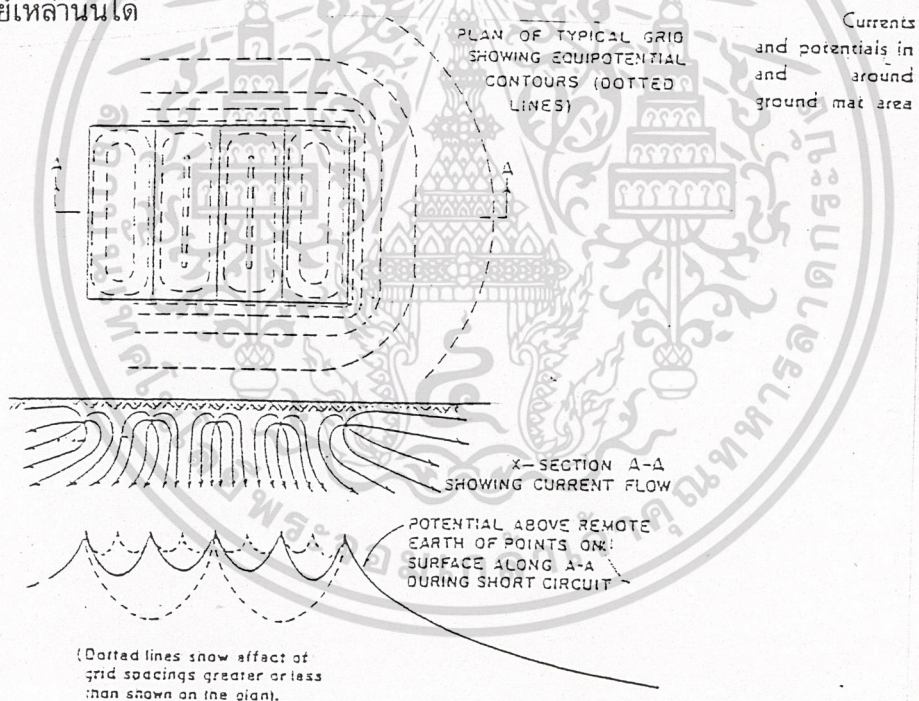 PLAN OF TYPICAL GRID
SHOWING EQUIPOTENTIAL
CONTOURS (DOTTED
LINES)
Currents
and potentials in
and around
ground mat area
A
A
X-SECTION A-A
SHOWING CURRENT FLOW
POTENTIAL ABOVE REMOTE
EARTH OF POINTS ON
SURFACE ALONG A-A
DURING SHORT CIRCUIT
(Dotted lines show affect of
grid spacings greater or less
than shown on the plan).